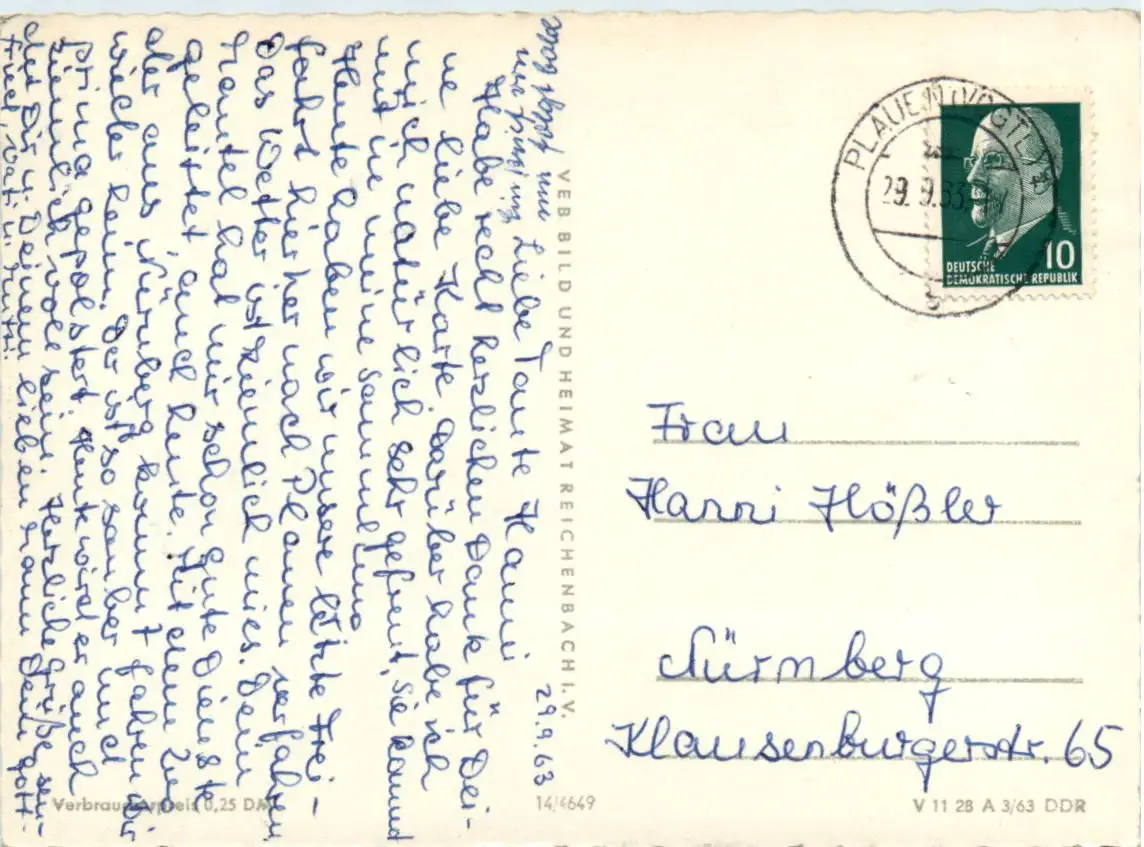 29.9.63
Liebe Tante Hanni
Habe recht herzlichen Dank für Dei-
ne liebe Karte. Darüber habe ich
mich natürlich sehr gefreut, sie kommt
mit in meine Sammlung
Heute haben wir unsere letzte Frei-
fahrt hier her nach Plauen verfahren
Das Wetter ist ziemlich mies. Dein
Mantel hat mir schon gute Dienste
geleistet auch heute. Mit dem Zug
der aus Nürnberg kommt fahren wir
wieder heim. Der ist so sauber und
prima gepolstert. Heute wird er auch
ziemlich voll sein. Herzliche Grüße sen-
det Dir u. Deinem lieben Mann Dein Gott-
fried, Vati u. Mutti.
VEB BILD UND HEIMAT REICHENBACH I. V.
Verbraucherpreis 0,25 DM
14/4649
V 11 28 A 3/63 DDR
PLAUEN (VOGTL)
29.9.63
DEUTSCHE
DEMOKRATISCHE REPUBLIK
10
Frau
Hanni Hößler
Nürnberg
Klausenburgerstr. 65